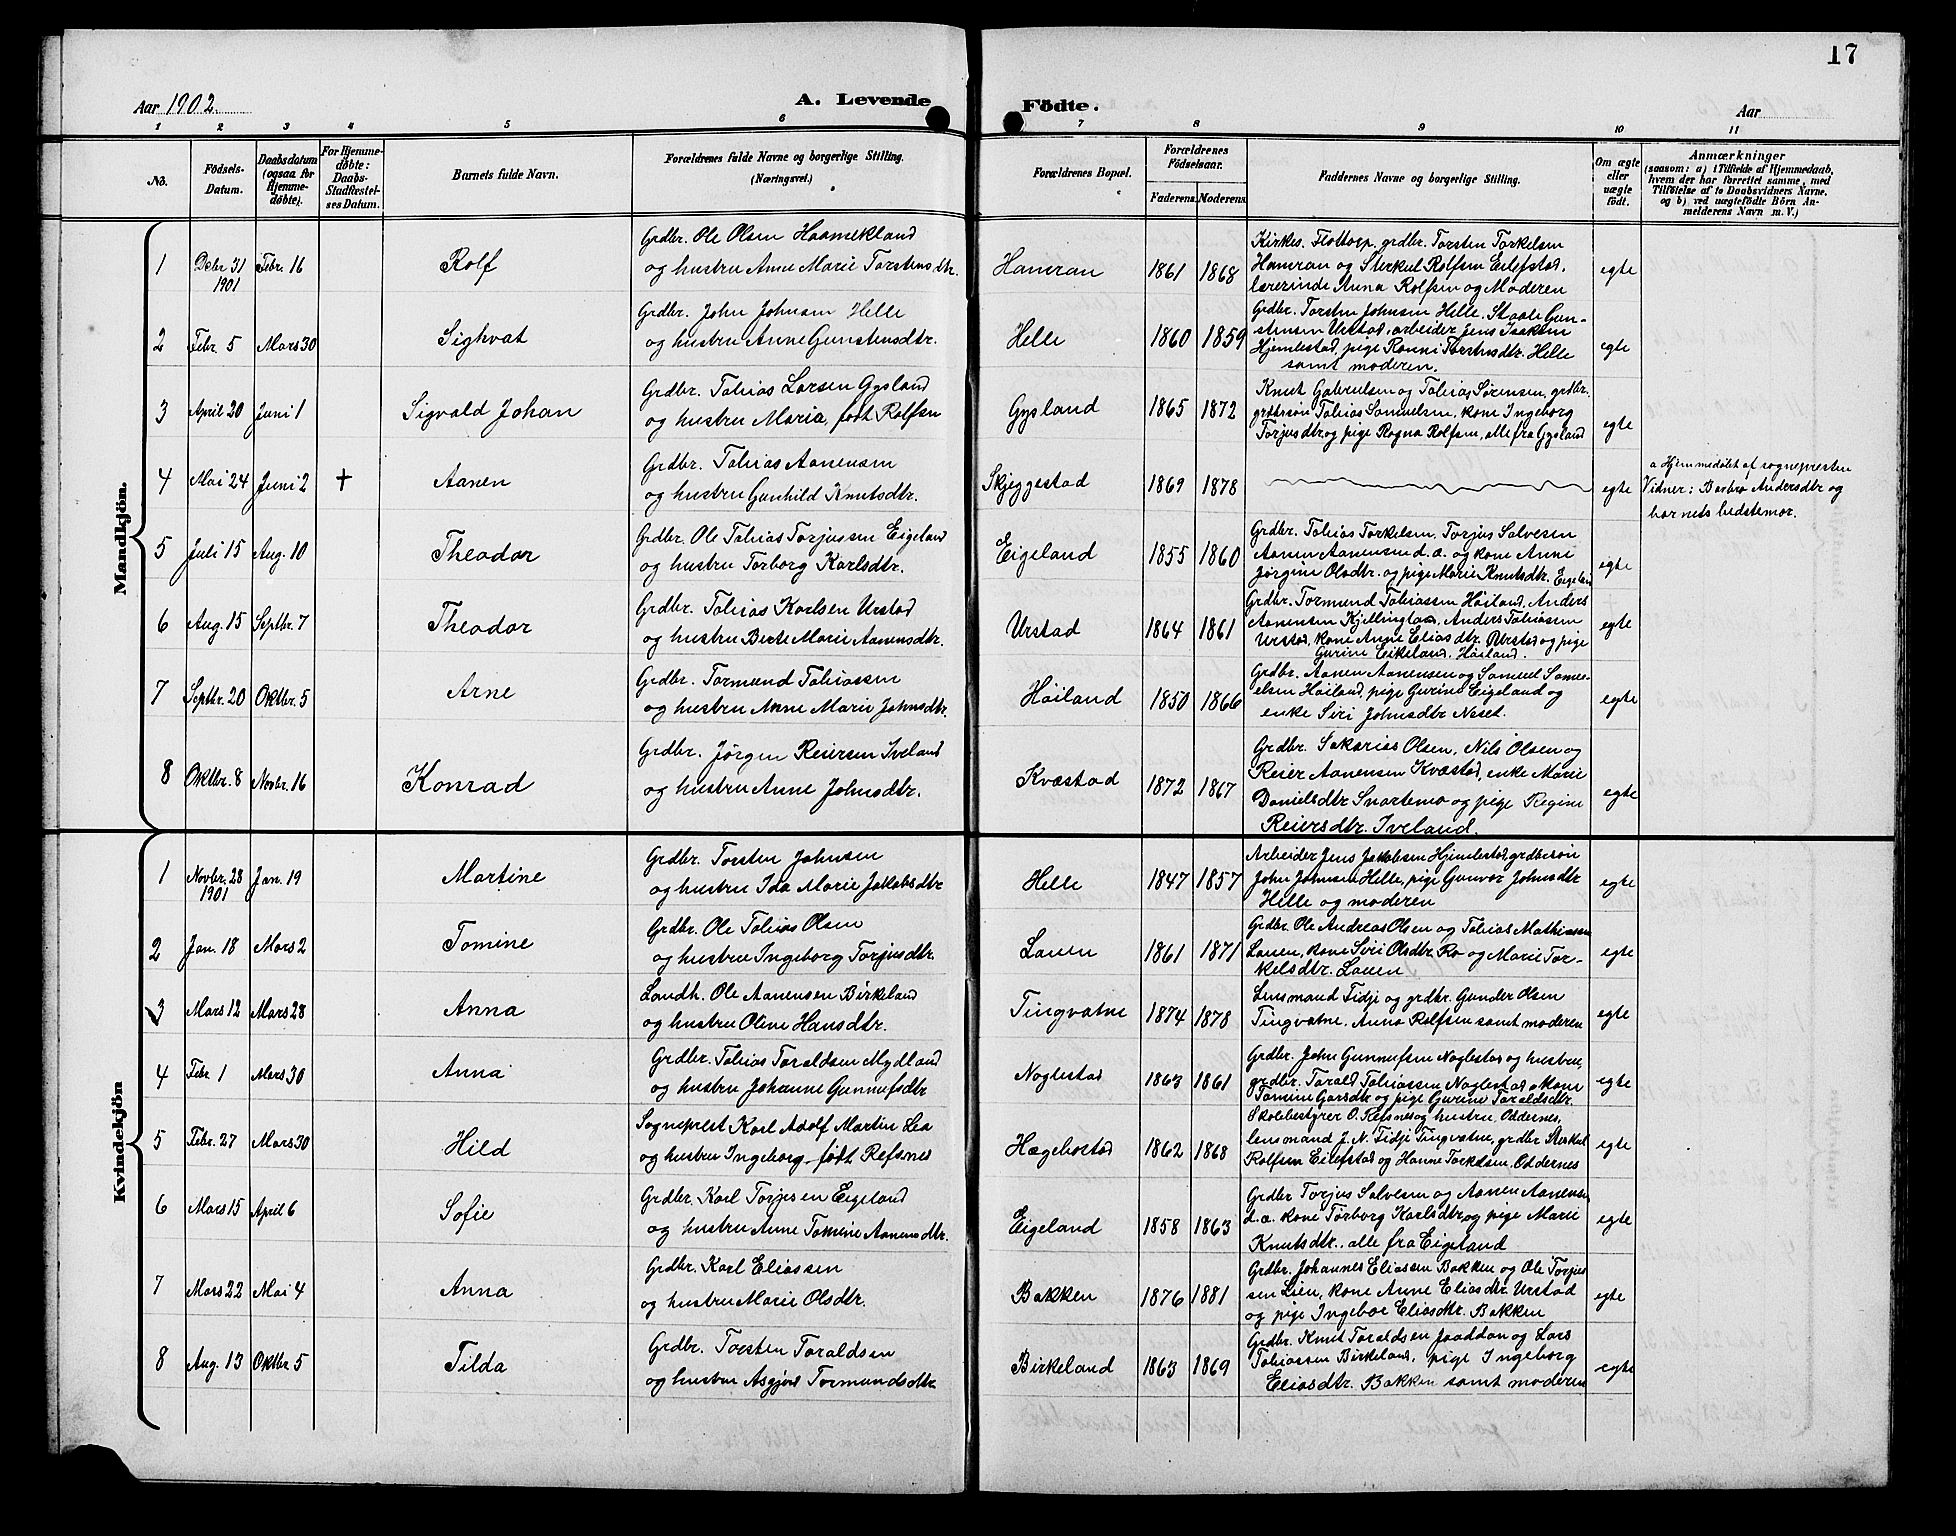 17
Aar 1902.
A. Levende Födte.
Aar
1 2 3 4 5 6 7 8 9 10 11
No.
Födsels-Datum.
Daabsdatum (ogsaa for Hjemmedøbte).
For Hjemmedøbte: Daabs-Stadfæstelses Datum.
Barnets fulde Navn.
Forældrenes fulde Navne og borgerlige Stilling. (Næringsvei.)
Forældrenes Bopæl.
Forældrenes Födselsaar.
Faderens. Moderens.
Faddernes Navne og borgerlige Stilling.
Om ægte eller uægte födt.
Anmærkninger
(saasom: a) i Tilfælde af Hjemmedaab, hvem der har forrettet samme, med Tilföielse af to Daabsvidners Navne. og b) ved uægtefödte Börn Anmelderens Navn m. V.)
Mandkjön.
1 Dcbr 31 1901 Febr. 16 Rolf
Grdbr. Ole Olsen Haamekland
og hustru Anne Marie Torstensdtr.
Hamran 1861 1868
Kirkes. Flottorp, grdbr. Torsten Torkelsen
Hamran og Sterkul Rolfsen Eilefstad,
lærerinde Anna Rolfsen og Moderen
egte
2 Febr. 5 Mars 30 Sighvat
Grdbr. John Johnsen Helle
og hustru Anne Gunstensdtr.
Helle 1860 1859
Grdbr. Torsten Johnsen Helle, Staale Gun-
stensen Urstad, arbeider Jens Isaksen
Hjemlestad, pige Ronni Torstensdtr. Helle
samt moderen.
egte
3 April 20 Juni 1 Sigvald Johan
Grdbr. Tobias Larsen Gysland
og hustru Maria, født Rolfsen
Gysland 1865 1872
Knut Gabrielsen og Tobias Sørensen, grdbr.
grdbrsøn Tobias Samuelsen, kone Ingeborg
Torjusdtr og pige Ragna Rolfsen, alle fra Gysland
egte
4 Mai 24 Juni 2 † Aanen
Grdbr. Tobias Aanensen
og hustru Gunhild Knutsdtr.
Skjeggestad 1869 1878
egte
a Hjemmedøbt af sognepresten
Vidner: Barbro Andersdtr og
barnets bedstemor.
5 Juli 15 Aug. 10 Theodor
Grdbr. Ole Tobias Torjussen Eigeland
og hustru Torborg Karlsdtr.
Eigeland 1855 1860
Grdbr. Tobias Torkelsen, Torjus Salvesen
Aanen Aanensen d. æ. og kone Anne
Jørgine Olsdtr. og pige Marie Knutsdtr. Eigelan
egte
6 Aug. 15 Septbr. 7 Theodor
Grdbr. Tobias Karlsen Urstad
og hustru Berte Marie Aanensdtr.
Urstad 1864 1861
Grdbr. Tormund Tobiassen Høiland, Anders
Aanensen Kjellingland, Anders Tobiassen
Urstad, kone Anne Eliasdtr. Urstad og pige
Gurine Eikeland, Høiland.
egte
7 Septbr. 20 Oktbr. 5 Arne
Grdbr. Tormund Tobiassen
og hustru Anne Marie Johnsdtr.
Høiland 1850 1866
Grdbr. Aanen Aanensen og Samuel Samu-
elsen Høiland, pige Gurine Eigeland og
enke Siri Johnsdtr Neset.
egte
8 Oktbr. 8 Novbr. 16 Konrad
Grdbr. Jørgen Reiersen Iveland
og hustru Anne Johnsdtr.
Kvæstad 1872 1867
Grdbr. Sakarias Olsen, Nils Olsen og
Reier Aanensen Kvæstad, enke Marie
Danielsdtr Snartemo og pige Regine
Reiersdtr. Iveland.
egte
Kvindekjön
1 Novbr. 28 1901 Jan. 19 Martine
Grdbr. Torsten Johnsen
og hustru Ida Marie Jakobsdtr
Helle 1847 1857
Arbeider Jens Jakobsen Hjemlestad, grdbrsøn
John Johnsen Helle, pige Gunvor Johnsdtr
Helle og moderen
egte
2 Jan. 18 Mars 2 Tomine
Grdbr. Ole Tobias Olsen
og hustru Ingeborg Torjusdtr.
Lauen 1861 1871
Grdbr. Ole Andreas Olsen og Tobias Mathiassen
Lauen, kone Siri Olsdtr. Ro og Marie Tor-
kelsdtr. Lauen
egte
3 Mars 12 Mars 28 Anna
Landh. Ole Aanensen Birkeland
og hustru Oline Hansdtr.
Tingvatne 1874 1878
Lensmand Tidje og grdbr. Gunder Olsen
Tingvatne, Anna Rolfsen samt moderen
egte
4 Febr. 1 Mars 30 Anna
Grdbr. Tobias Taraldsen Mydland
og hustru Johanne Gunnufsdtr
Naglestad 1863 1861
Grdbr. John Gunnufsen Naglestad og hustru,
grdbr. Tarald Tobiassen Naglestad, kone
Tomine Garsdtr og pige Gurine Taraldsdtr.
egte
5 Febr. 27 Mars 30 Hild
Sogneprest Karl Adolf Martin Lea
og hustru Ingeborg, født Refsnes
Hægebostad 1862 1868
Skolebestyrer O. Refsnes og hustru, Oddernes,
lensmand J. N. Tidje Tingvatne, grdbr Sterkul
Rolfsen Eilefstad og Hanne Torkelsen, Oddernes
egte
6 Mars 15 April 6 Sofie
Grdbr. Karl Torjusen Eigeland
og hustru Anne Tomine Aanensdtr.
Eigeland 1858 1863
Grdbr Torjus Salvesen og Aanen Aanensen
d. æ. kone Torborg Karlsdtr og pige Marie
Knutsdtr., alle fra Eigeland
egte
7 Mars 22 Mai 4 Anna
Grdbr. Karl Eliassen
og hustru Marie Olsdtr.
Bakken 1876 1881
Grdbr. Johannes Eliassen Bakken og Ole Torjus
sen Lien, kone Anne Eliasdtr. Urstad
og pige Ingebor Eliasdtr. Bakken
egte
8 Aug. 13 Oktbr. 5 Tilda
Grdbr. Torsten Taraldsen
og hustru Asgjerd Tormundsdtr
Birkeland 1863 1869
Grdbr. Knut Taraldsen Jaaddan og Lars
Tobiassen Birkeland, pige Ingeborg
Eliasdtr. Bakken samt moderen
egte